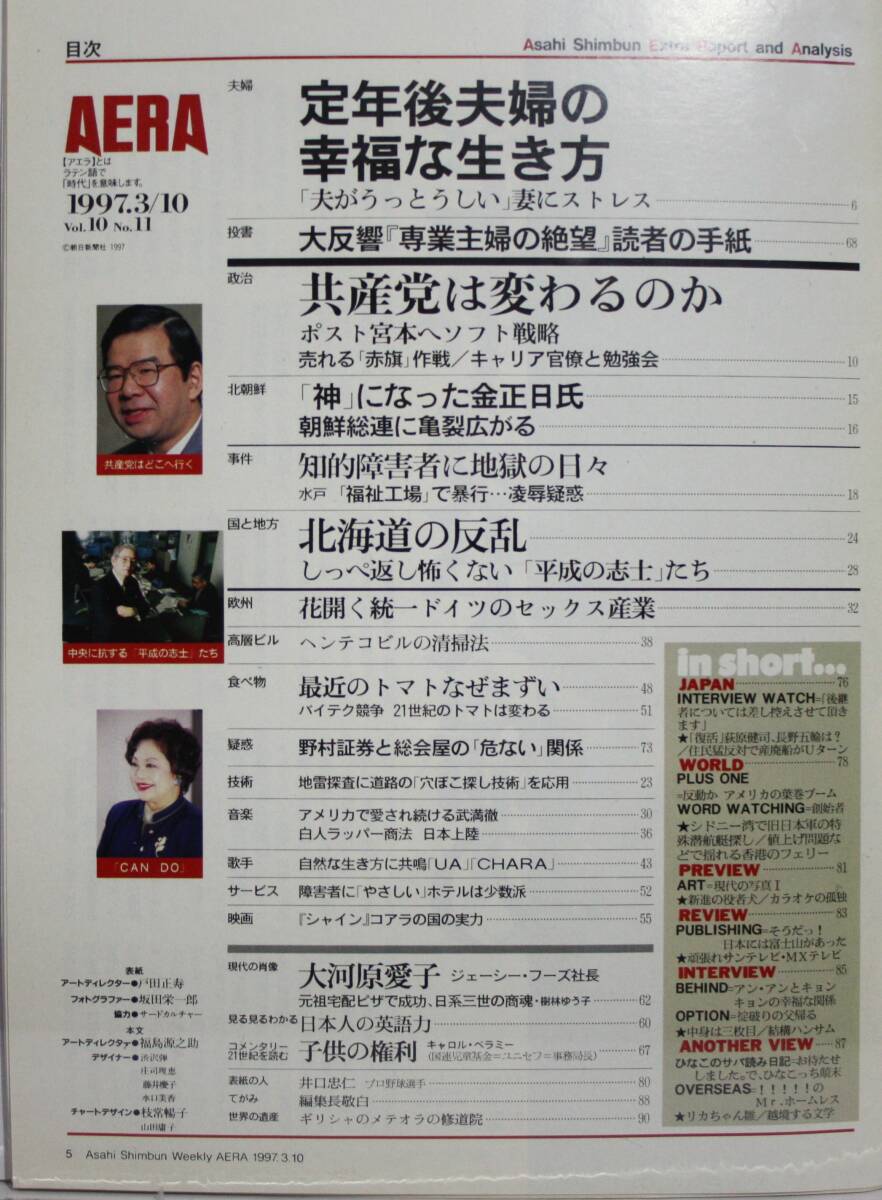 目次
Asahi Shimbun Extra Report and Analysis
AERA
【アエラ】とは
ラテン語で
「時代」を意味します。
1997.3/10
Vol.10 No.11
©朝日新聞社 1997
夫婦
定年後夫婦の
幸福な生き方
「夫がうっとうしい」妻にストレス 6
投書 大反響『専業主婦の絶望』読者の手紙 68
政治
共産党は変わるのか
ポスト宮本へソフト戦略
売れる「赤旗」作戦/キャリア官僚と勉強会 10
共産党はどこへ行く
北朝鮮 「神」になった金正日氏 15
朝鮮総連に亀裂広がる 16
事件 知的障害者に地獄の日々
水戸 「福祉工場」で暴行…凌辱疑惑 18
国と地方 北海道の反乱 24
しっぺ返し怖くない「平成の志士」たち 28
中央に抗する「平成の志士」たち
欧州 花開く統一ドイツのセックス産業 32
高層ビル ヘンテコビルの清掃法 38
食べ物 最近のトマトなぜまずい 48
バイテク競争 21世紀のトマトは変わる 51
疑惑 野村証券と総会屋の「危ない」関係 73
技術 地雷探査に道路の「穴ぼこ探し技術」を応用 23
音楽 アメリカで愛され続ける武満徹 30
白人ラッパー商法 日本上陸 36
歌手 自然な生き方に共鳴「UA」「CHARA」 43
サービス 障害者に「やさしい」ホテルは少数派 52
映画 『シャイン』コアラの国の実力 55
「CAN DO」
現代の肖像 大河原愛子 ジェーシー・フーズ社長
元祖宅配ピザで成功、日系三世の商魂・樹林ゆう子 62
見る見るわかる 日本人の英語力 60
コメンタリー
21世紀を読む
子供の権利 キャロル・ベラミー
(国連児童基金=ユニセフ=事務局長) 67
表紙の人 井口忠仁 プロ野球選手 80
てがみ 編集長敬白 88
世界の遺産 ギリシャのメテオラの修道院 90
表紙
アートディレクター●戸田正寿
フォトグラファー●坂田栄一郎
協力●サードカルチャー
本文
アートディレクタァ●福島源之助
デザイナー●渋沢弾
庄司理恵
藤井慶子
水口美香
チャートデザイン●枝常暢子
山田庸子
in short...
JAPAN 76
INTERVIEW WATCH=「後継
者については差し控えさせて頂き
ます」
★「復活」荻原健司、長野五輪は?
/住民猛反対で産廃船がUターン
WORLD 78
PLUS ONE
=反動か アメリカの葉巻ブーム
WORD WATCHING=創始者
★シドニー湾で旧日本軍の特
殊潜航艇探し/値上げ問題な
どで揺れる香港のフェリー
PREVIEW 81
ART=現代の写真I
★新進の役者犬/カラオケの孤独
REVIEW 83
PUBLISHING=そうだっ!
日本には富士山があった
★頑張れサンテレビ・MXテレビ
INTERVIEW 85
BEHIND=アン・アンとキョン
キョンの幸福な関係
OPTION=掟破りの父帰る
★中身は三枚目/結構ハンサム
ANOTHER VIEW 87
ひなこのサバ読み日記=お待たせ
しました。で、ひなこっち顛末
OVERSEAS=!!!!!の
Mr.ホームレス
★リカちゃん雛/越境する文学
5 Asahi Shimbun Weekly AERA 1997.3.10